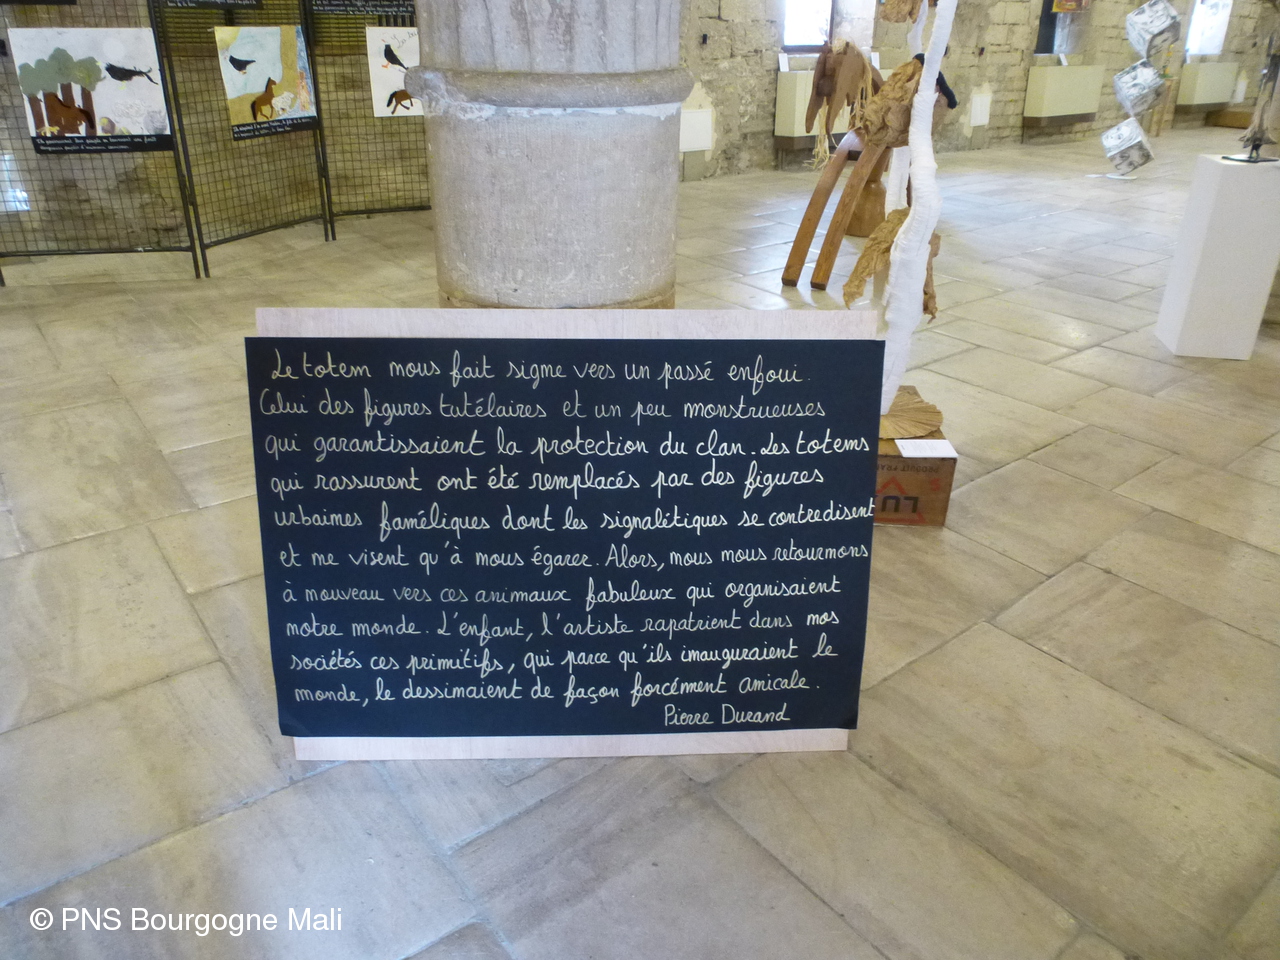 Le totem nous fait signe vers un passé enfoui.
Celui des figures tutélaires et un peu monstrueuses
qui garantissaient la protection du clan. Les totems
qui rassurent ont été remplacés par des figures
urbaines faméliques dont les signalétiques se contredisent
et ne visent qu'à nous égarer. Alors, nous nous retournons
à nouveau vers ces animaux fabuleux qui organisaient
notre monde. L'enfant, l'artiste rapatrient dans nos
sociétés ces primitifs, qui parce qu'ils inauguraient le
monde, le dessinaient de façon forcément amicale.
Pierre Durand
PRODUIT
LU
© PNS Bourgogne Mali